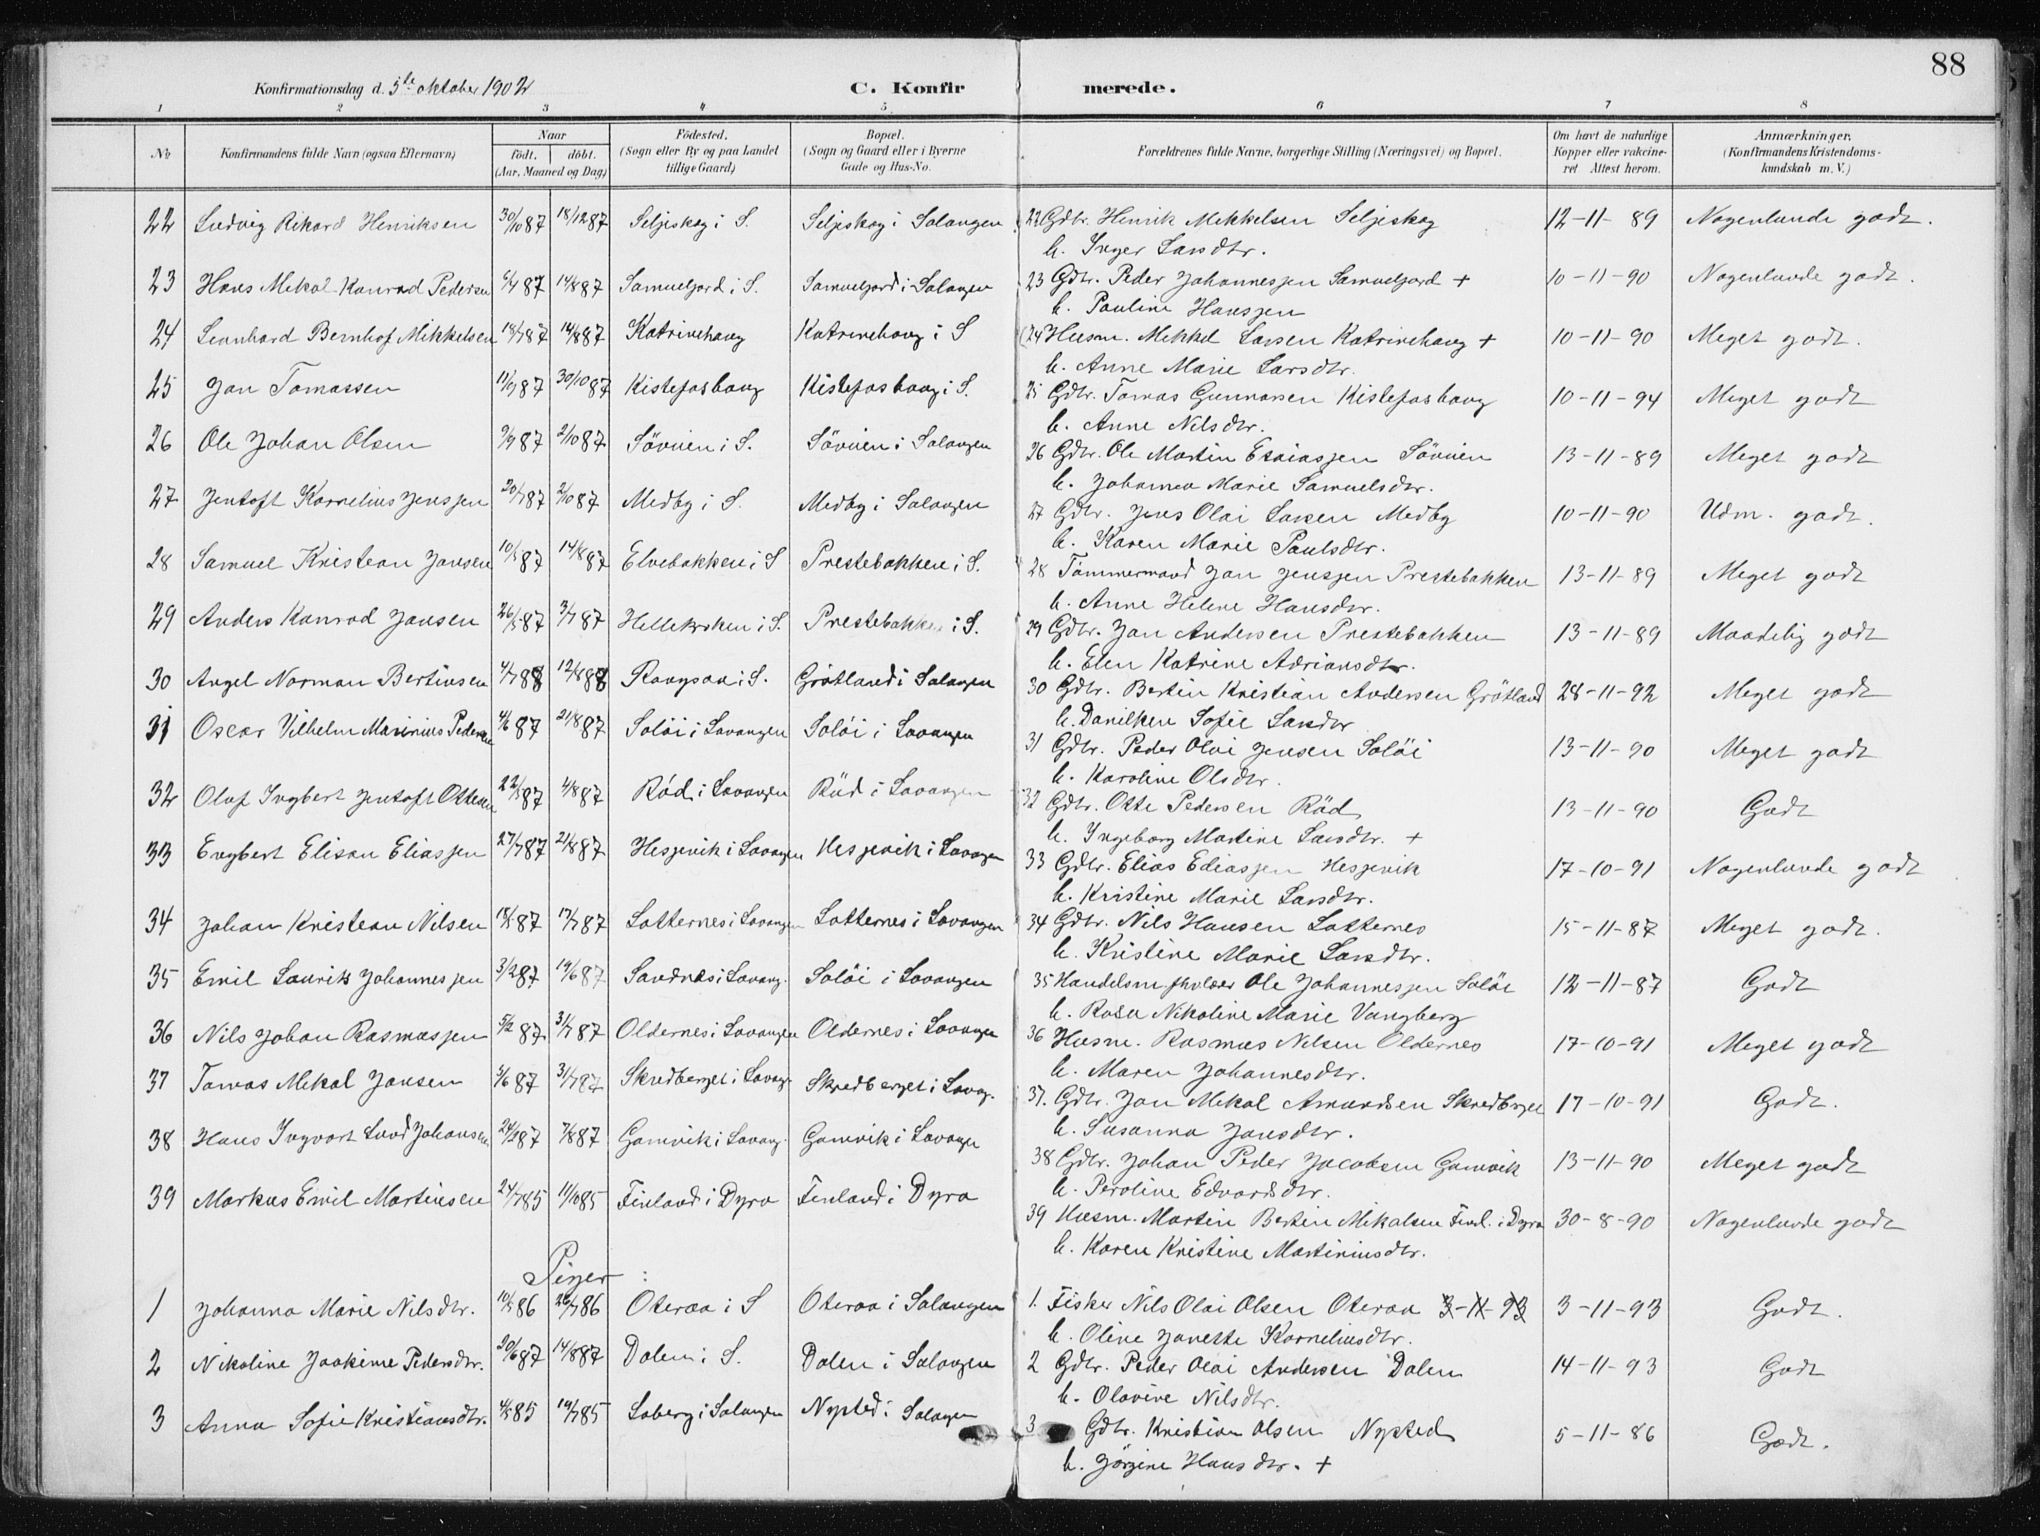 88
Konfirmationsdag d. 5te oktober 1902
C. Konfirmerede.
1 2 3 4 5 6 7 8
No
Konfirmandens fulde Navn (ogsaa Efternavn)
Naar
födt. döbt.
(Aar, Maaned og Dag)
Födested.
(Sogn eller By og paa Landet
tillige Gaard)
Bopæl.
(Sogn og Gaard eller i Byerne
Gade og Hus-No.
Forældrenes fulde Navne, borgerlige Stilling (Næringsvei) og Bopæl.
Om havt de naturlige
Kopper eller vakcine-
ret Attest herom.
Anmærkninger.
(Konfirmandens Kristendoms-
kundskab m. V.)
22 Ludvig Rikard Henriksen 30/10 87 18/12 87 Seljeskog i S. Seljeskog i Salangen 22 Gdbr. Henrik Mikkelsen Seljeskog 12-11-89 Nogenlunde godt.
h. Inger Larsdtr.
23 Hans Mikal Konrad Pedersen 87 14/8 87 Samueljord i S. Samueljord i Salangen 23 Gdbr. Peder Johannessen Samueljord + 10-11-90 Nogenlunde godt.
h. Pauline Hanssen
24 Leonhard Bernhof Mikkelsen 18/7 87 14/8 87 Katrinehaug Katrinehaug i S 24 Husm. Mikkel Larsen Katrinehaug + 10-11-90 Meget godt.
h. Anne Marie Larsdtr.
25 Jan Tomassen 11/9 87 30/10 87 Kistefoshaug Kistefoshaug i S. 25 Gdbr. Tomas Gunnarsen Kistefoshaug 10-11-94 Meget godt
h. Anne Nilsdtr.
26 Ole Johan Olsen 9/9 87 2/10 87 Sövuien i S. Sövuien i Salangen 26 Gdbr. Ole Martin Esaiassen Sövuien 13-11-89 Meget godt
h. Johanna Marie Samuelsdtr.
27 Jentoft Kornelius Jenssen 20/7 87 2/10 87 Medby i S. Medby i Salangen 27 Gdbr. Jens Olai Larsen Medby 10-11-90 Udm. godt.
h. Karen Marie Paulsdtr.
28 Samuel Kristean Jansen 10/5 87 14/8 87 Elvebakken i S Prestebakken i S. 28 Tömmermand Jan Jenssen Prestebakken 13-11-89 Meget godt
h. Anne Helene Hansdtr.
29 Anders Konrad Jansen 26/5 87 3/7 87 Hellekroken i S. Prestebakken i S. 29 Gdbr. Jan Andersen Prestebakken 13-11-89 Maadelig godt
h. Elen Katrine Adriansdtr.
30 Angel Norman Bertinsen 4/7 88 12/8 88 i S. Grötland i Salangen 30 Gdbr. Bertin Kristian Andersen Grötland 28-11-92 Meget godt
h. Danilken Sofie Larsdtr
31 Oscar Vilhelm Marinius Pedersen 4/6 87 21/8 87 Solöi i Lavangen Solöi i Lavangen 31 Gdbr. Peder Olai Jensen Solöi 13-11-90 Meget godt
h. Karoline Olsdtr.
32 Olaf Ingbert Jentoft Ottesen 22/5 87 4/8 87 Röd i Lavangen Röd i Lavangen 32 Gdbr. Otte Pedersen Röd 13-11-90 Godt
h. Ingeborg Martine Larsdtr. +
33 Engbert Elisan Eliassen 27/7 87 21/8 87 Hesjevik i Lavangen Hesjevik i Lavangen 33 Gdbr. Elias Ediassen Hesjevik 17-10-91 Nogenlunde godt
h. Kristine Marie Larsdtr.
34 Johan Kristean Nilsen 87 17/7 87 Lotternes i Lavangen Lotternes i Lavangen 34 Gdbr. Nils Hansen Lotternes 15-11-87 Meget godt.
h. Kristine Marie Larsdtr.
35 Emil Laurik Johannessen 3/2 87 19/6 87 Sandnes i Lavang. Solöi i Lavangen 35 Handelsm. Ole Johannessen Solöi 12-11-87 Godt
h. Rosa Nikoline Marie Vangberg
36 Nils Johan Rasmassen 5/2 87 31/7 87 Oldernes i Lavangen Oldernes i Lavangen 36 Husm. Rasmus Nilsen Oldernes 17-10-91 Meget godt
h. Maren Johannesdtr.
37 Tomas Mikal Jansen 3/6 87 31/7 87 Skredberget i Lavag. Skredberget i Lavag. 37. Gdbr. Jan Mikal Amundsen Skredberget 17-10-91 Godt.
h. Susanna Jansdtr.
38 Hans Ingvart Lud Johansen 87 7/8 87 Gamvik i Lavang. Gamvik i Lavangen 38 Gdbr. Johan Peder Jacobsen Gamvik 13-11-90 Meget godt
h. Peroline Edvardsdtr.
39 Markus Emil Martinsen 24/7 85 11/10 85 Finland i Dyrö Finland i Dyrö 39 Husm. Martin Bertin Mikalsen Finl. i Dyrö 30-8-90 Nogenlunde godt
h. Karen Kristine Martiniusdtr.
Piger:
1 Johanna Marie Nilsdtr. 10/5 86 26/7 86 Oteraa i S Oteraa i Salangen 1. Fisker Nils Olai Olsen Oteraa 3-11-93 3-11-93 Godt.
h. Oline Janette Kornelиusdtr.
2 Nikoline Joakime Pedersdtr. 20/6 87 14/8 87 Dalen i S. Dalen i Salangen 2 Gdbr. Peder Olai Andersen Dalen 14-11-93 Godt
h. Olavine Nilsdtr.
3 Anna Sofie Kristiansdtr. 85 19/7 85 Laberg i Salangen Nysted i Salangen 3 Gdbr. Kristian Olsen Nysted 5-11-86 Godt.
h. Jörgine Hansdtr. +